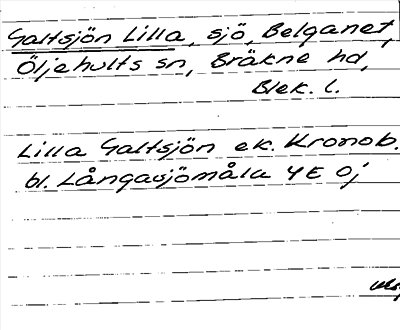 Galtsjön Lilla, sjö, Belganet,
Öljehults sn, Bräkne hd,
Blek. l.
Lilla Galtsjön ek. Kronob.
bl. Långasjömåla 4E Oj